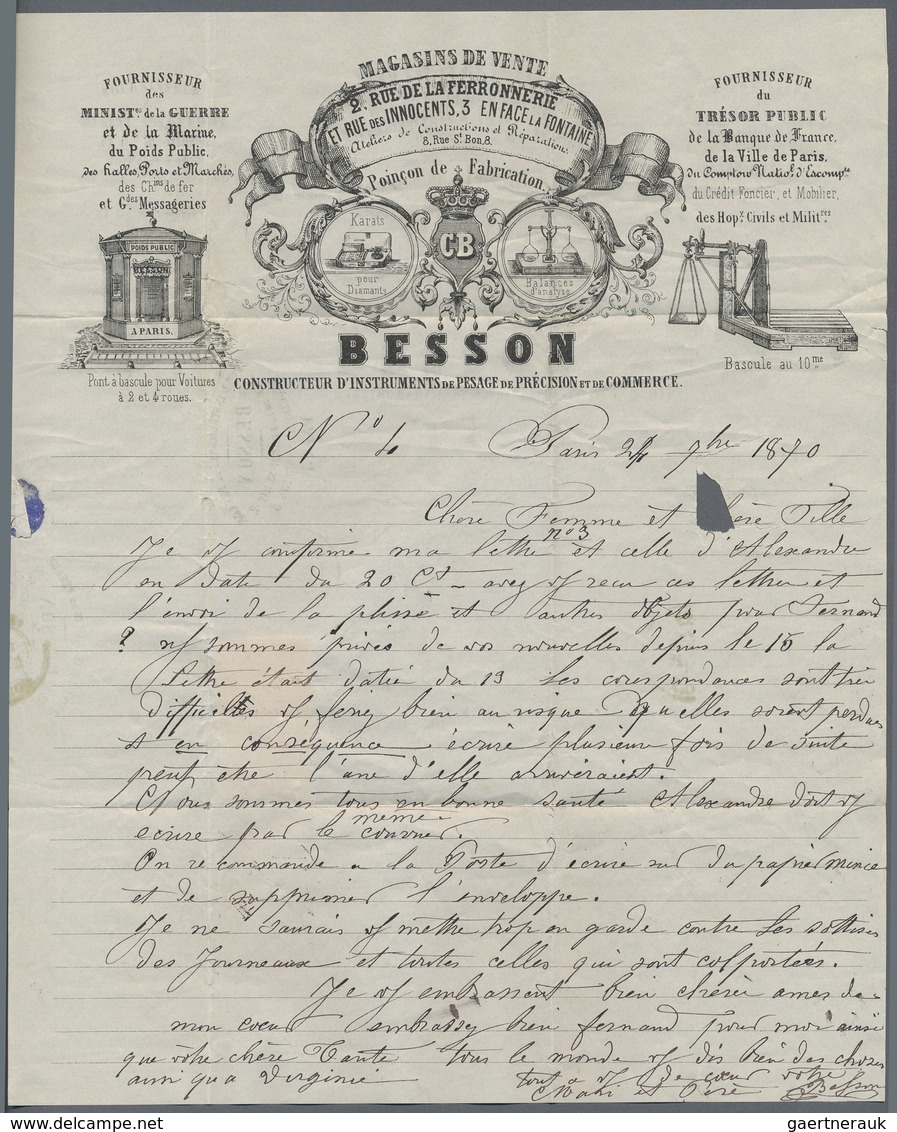 MAGASINS DE VENTE
2, RUE DE LA FERRONNERIE
ET RUE DES INNOCENTS, 3 EN FACE LA FONTAINE
Ateliers de Constructions et Réparations
8, Rue St Bon, 8.
Poinçon de Fabrication
FOURNISSEUR
des
MINISTres de la GUERRE
et de la Marine,
du Poids Public,
des halles, Ports et Marchés,
des Chins de fer
et Gdes Messageries
POIDS PUBLIC
BESSON
A PARIS.
Pont à bascule pour Voitures
à 2 et 4 roues.
Karats
pour
Diamants
CB
Balances
d'analyse
FOURNISSEUR
du
TRÉSOR PUBLIC
de la Banque de France,
de la Ville de Paris,
du Comptoir Natiol d'Escompte
du Crédit Foncier, et Mobilier,
des Hopx Civils et Militres
Bascule au 10me
BESSON
CONSTRUCTEUR D'INSTRUMENTS DE PESAGE DE PRÉCISION ET DE COMMERCE.
No 4 Paris 24 7bre 1870
Chère Femme et chère Fille
Je vs confirme ma lettre no 3 et celle d'Alexandre
en date du 20 Ct - avez vs reçu ces lettres et
l'envoi de la plisse et autres objets pour Fernand
? ns sommes privés de vos nouvelles depuis le 15 la
lettre était datée du 13 les correspondances sont très
difficiles vs ferez bien au risque qu'elles soient perdues
et en conséquence écrire plusieurs fois de suite
peut être l'une d'elle arriveraient.
Nous sommes tous en bonne santé Alexandre doit vs
ecrire par le même courrier.
On recommande a la Poste d'écrire sur du papier mince
et de supprimer l'enveloppe.
Je ne saurais vs mettre trop en garde contre les sottises
des Journeaux et toutes celles qui sont colportées.
Je vs embrassent bien chères ames de
mon coeur embrassez bien fernand pour moi ainsi
que votre chère Tante tous le monde vs dis bien des choses
ainsi qu'a Virginie tout à vs de coeur votre
Mari et Père Besson
gaertnerauk